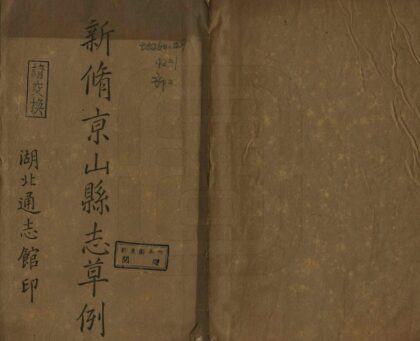 新脩京山縣志草例
請交換
湖北通志館印